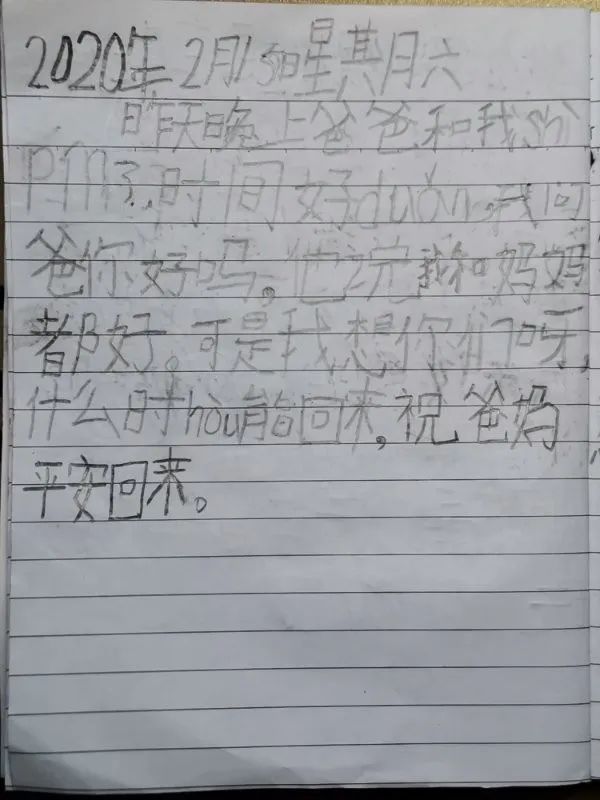 2020年2月15日星其月六
昨天晚上爸爸和我shì
PIN了,时间好duǎn,我问
爸你好吗,他说我和妈妈
都好。可是我想你们呀,
什么时hòu能回来,祝爸妈
平安回来。